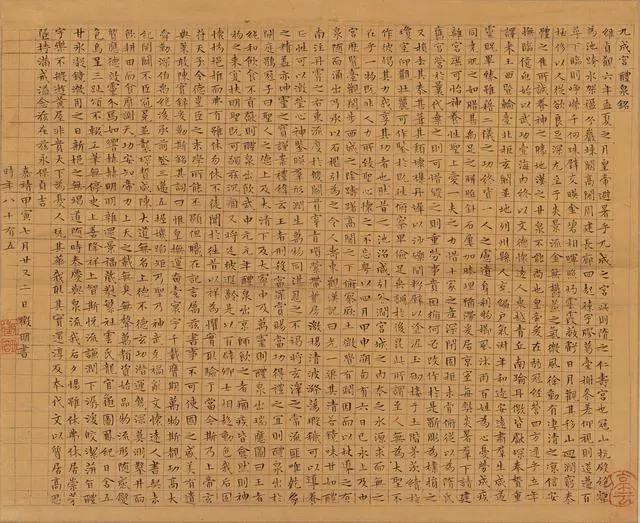 九成宮醴泉銘
維貞觀六年孟夏之月皇帝避暑乎九成之宮此則隋之仁壽宮也冠山抗殿絕壑
為池跨水架楹分巖竦闕高閣周建長廊四起棟宇膠葛臺榭參差仰視則迢遰百
尋下臨則崢嶸千仞珠璧交暎金碧相暉照灼雲霞蔽虧日月觀其移山迴澗窮泰
極侈以人從欲良足深尤至于炎景流金無鬱蒸之氣微風徐動有淒清之涼信安
體之佳所誠養神之勝地漢之甘泉不能尚也皇帝爰在弱冠經營四方逮乎立年
撫臨億兆始以武功壹海內終以文德懷遠人東越青丘南踰丹徼皆獻琛奉贄重
譯來王西暨輪臺北拒玄闕並地列州縣人充編戶氣淑年和邇安遠肅群生咸遂
靈貺畢臻雖藉二儀之功終資一人之慮遺身利物櫛風沐雨百姓為心憂勞成疾
同堯肌之如腊甚禹足之胼胝針石屢加腠理猶滯爰居京室每弊炎暑群下請建
離宮庶可怡神養性聖上愛一夫之力惜十家之產深閉固拒未肯俯從以為隋氏
舊宮營於曩代棄之則可惜毀之則重勞事貴因循何必改作於是斲彫為樸損之
又損去其泰甚葺其頹壞雜丹墀以沙礫間粉壁以塗泥玉砌接於土階茅茨續於
瓊室仰觀壯麗可作鑒於既往俯察卑儉足垂訓於後昆此所謂至人無為大聖不
作彼竭其力我享其功者也然昔之池沼咸引谷澗宮城之內本乏水源求而無之
在乎一物既非人力所致聖心懷之不忘粵以四月甲申朔旬有六日己亥上及中
宮歷覽臺觀閑步西城之陰躊躇高閣之下俯察厥土微覺有潤因而以杖導之有
泉隨而涌出乃承以石檻引為之令人壽東觀漢記曰光一渠其清若鏡味甘如醴
南注丹霄之右東流度於雙闕貫穿青瑣縈帶紫房激揚清波滌蕩瑕穢可以導養
正性可以澂瑩心神鑒暎群形潤生萬物同湛恩之不竭將玄澤之常流匪唯乾象
之精蓋亦坤靈之寶謹案禮緯云王者刑殺當罪賞錫當功得禮之宜則醴泉出於
闕庭鶡冠子曰聖人之德上及太清下及太寧中及萬靈則醴泉出瑞應圖曰王者
純和飲食不貢獻則醴泉出飲武中元元年醴泉出京師飲之者痼疾皆愈然則神
物之來寔扶明聖既可蠲茲沉痼又將延彼遐齡是以百辟卿士相趨動色我后固
懷撝挹推而弗有雖休勿休不徒聞於往昔以祥為懼實取驗於當今斯乃上帝玄
符天子令德豈臣之末學所能丕顯但職在記言屬茲書事不可使國之盛美有遺
典策敢陳實錄爰勒斯銘其詞曰惟皇撫運奄壹寰宇千載膺期萬物斯覩功高大
舜勤深伯禹絕後承前登三邁五握機蹈矩乃聖乃神武克禍亂文懷遠人書契未
紀開闢不臣冠冕並襲琛贄咸陳大道無名上德不德玄功潛運幾深莫測鑿井而
飲耕田而食靡謝天功安知帝力上天之載無臭無聲萬類資始品物流形隨感變
質應德效靈介焉如響赫赫明明雜遝景福葳蕤繁祉雲氏龍官龜圖鳳紀日含五
色烏呈三趾頌不輟工筆無停史上善降祥上智斯悅流謙潤下潺湲皎潔蓱旨醴
甘氷凝鏡澈用之日新挹之無竭道隨時泰慶與泉流我后夕惕雖休弗休居崇茅
宇樂不般遊黃屋非貴天下為憂人玩其華我取其實還淳反本代文以質居高思
墜持滿戒溢念茲在茲永保貞吉
嘉靖甲寅七月廿又二日徵明書
時年八十有五